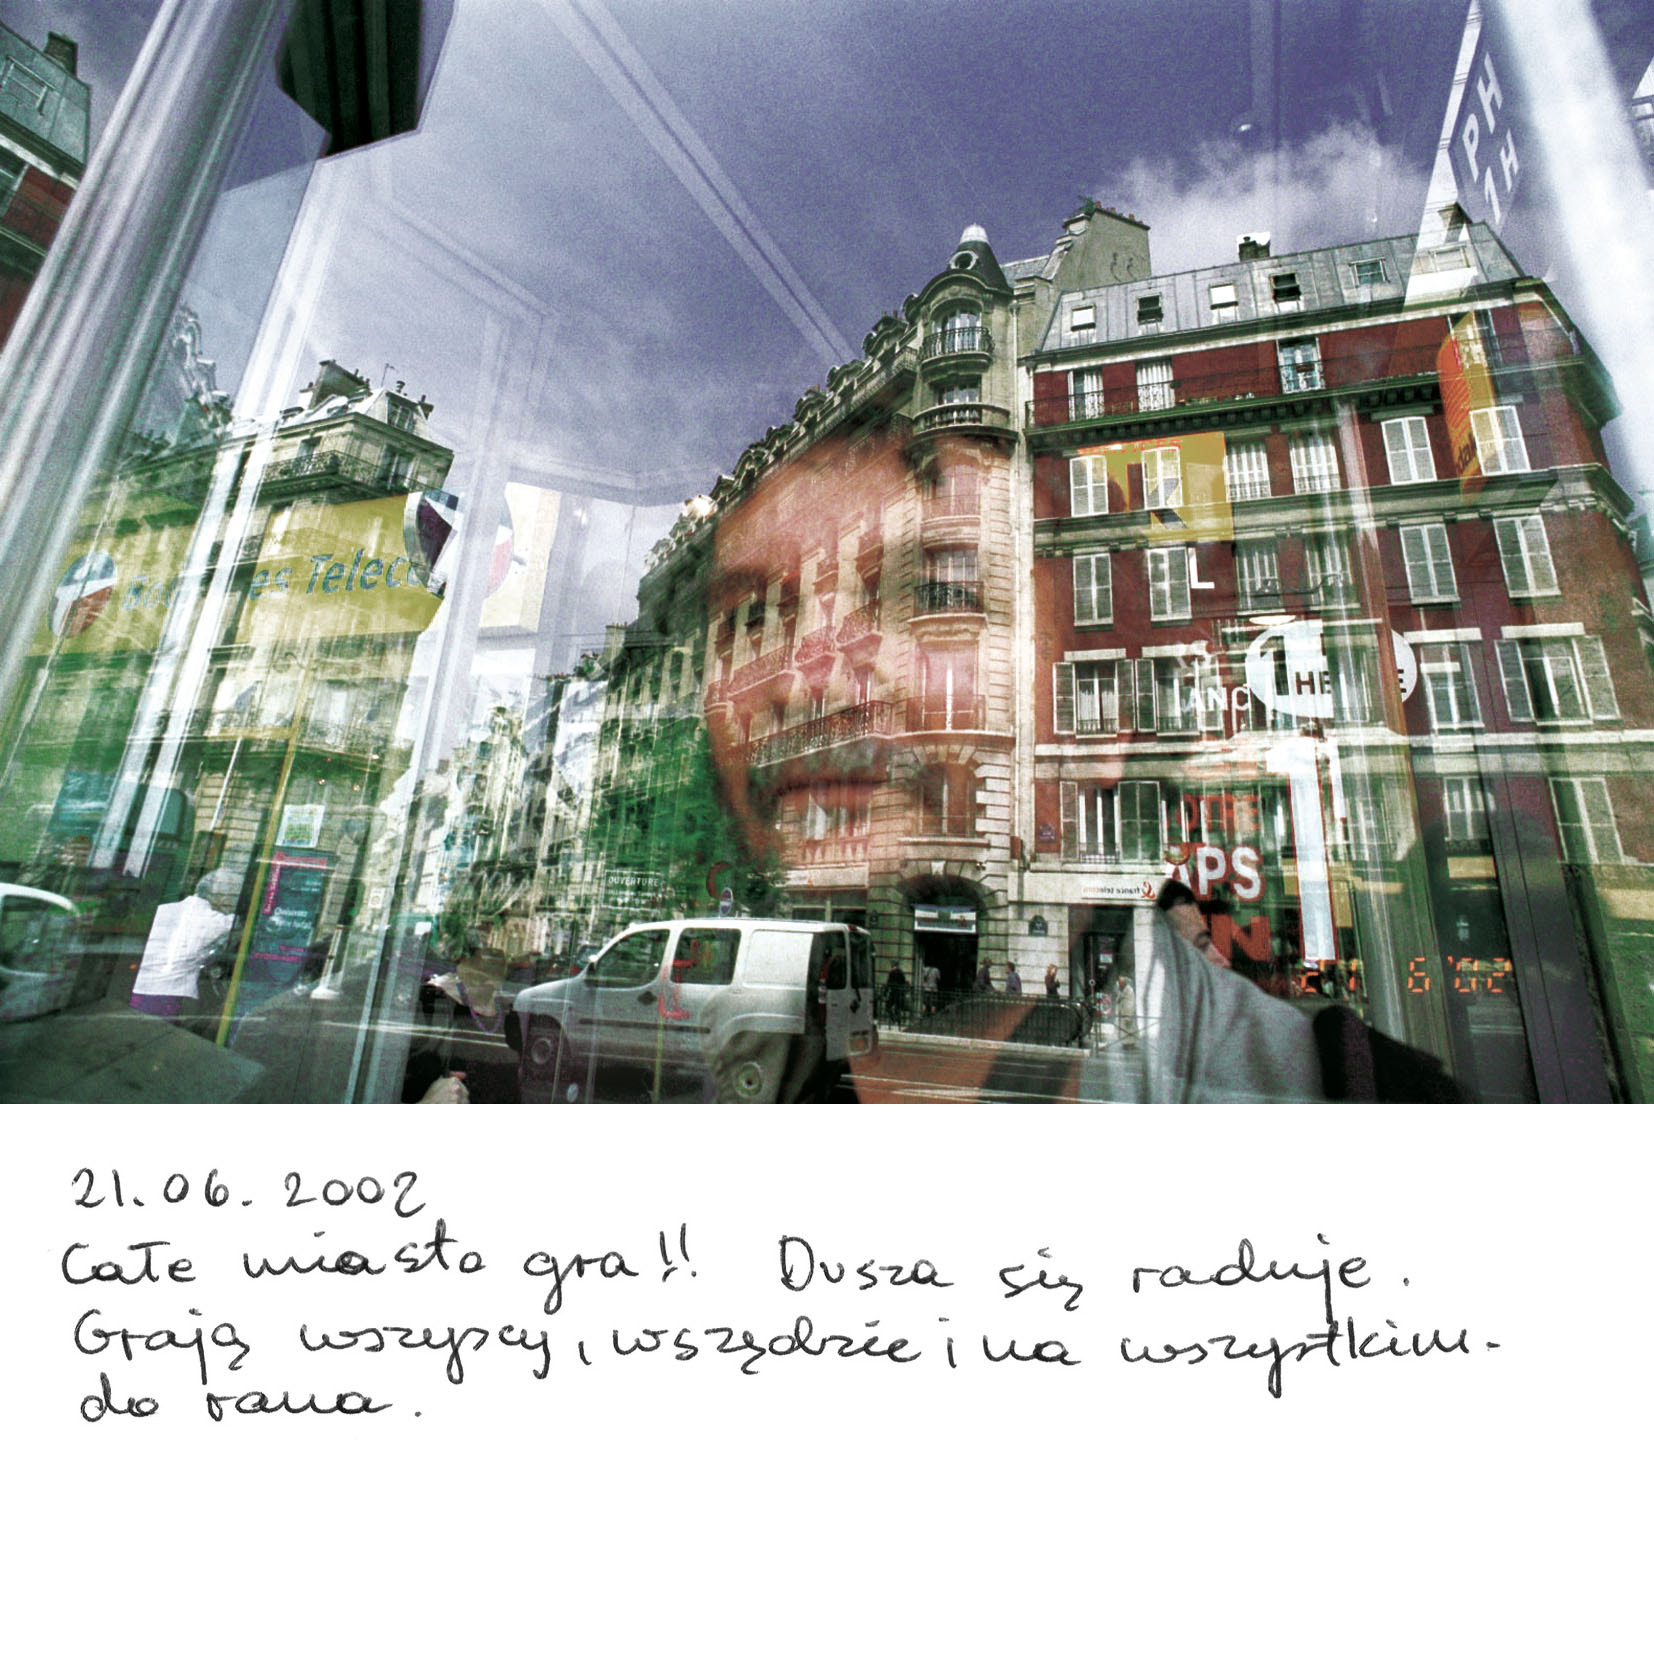 PH
1H
Telec
L
ANC
THE
OTRE
APS
OUVERTURE
france telecom
21 6'02
21.06.2002
Całe miasto gra!! Dusza się raduje.
Grają wszyscy, wszędzie i na wszystkim-
do rana.